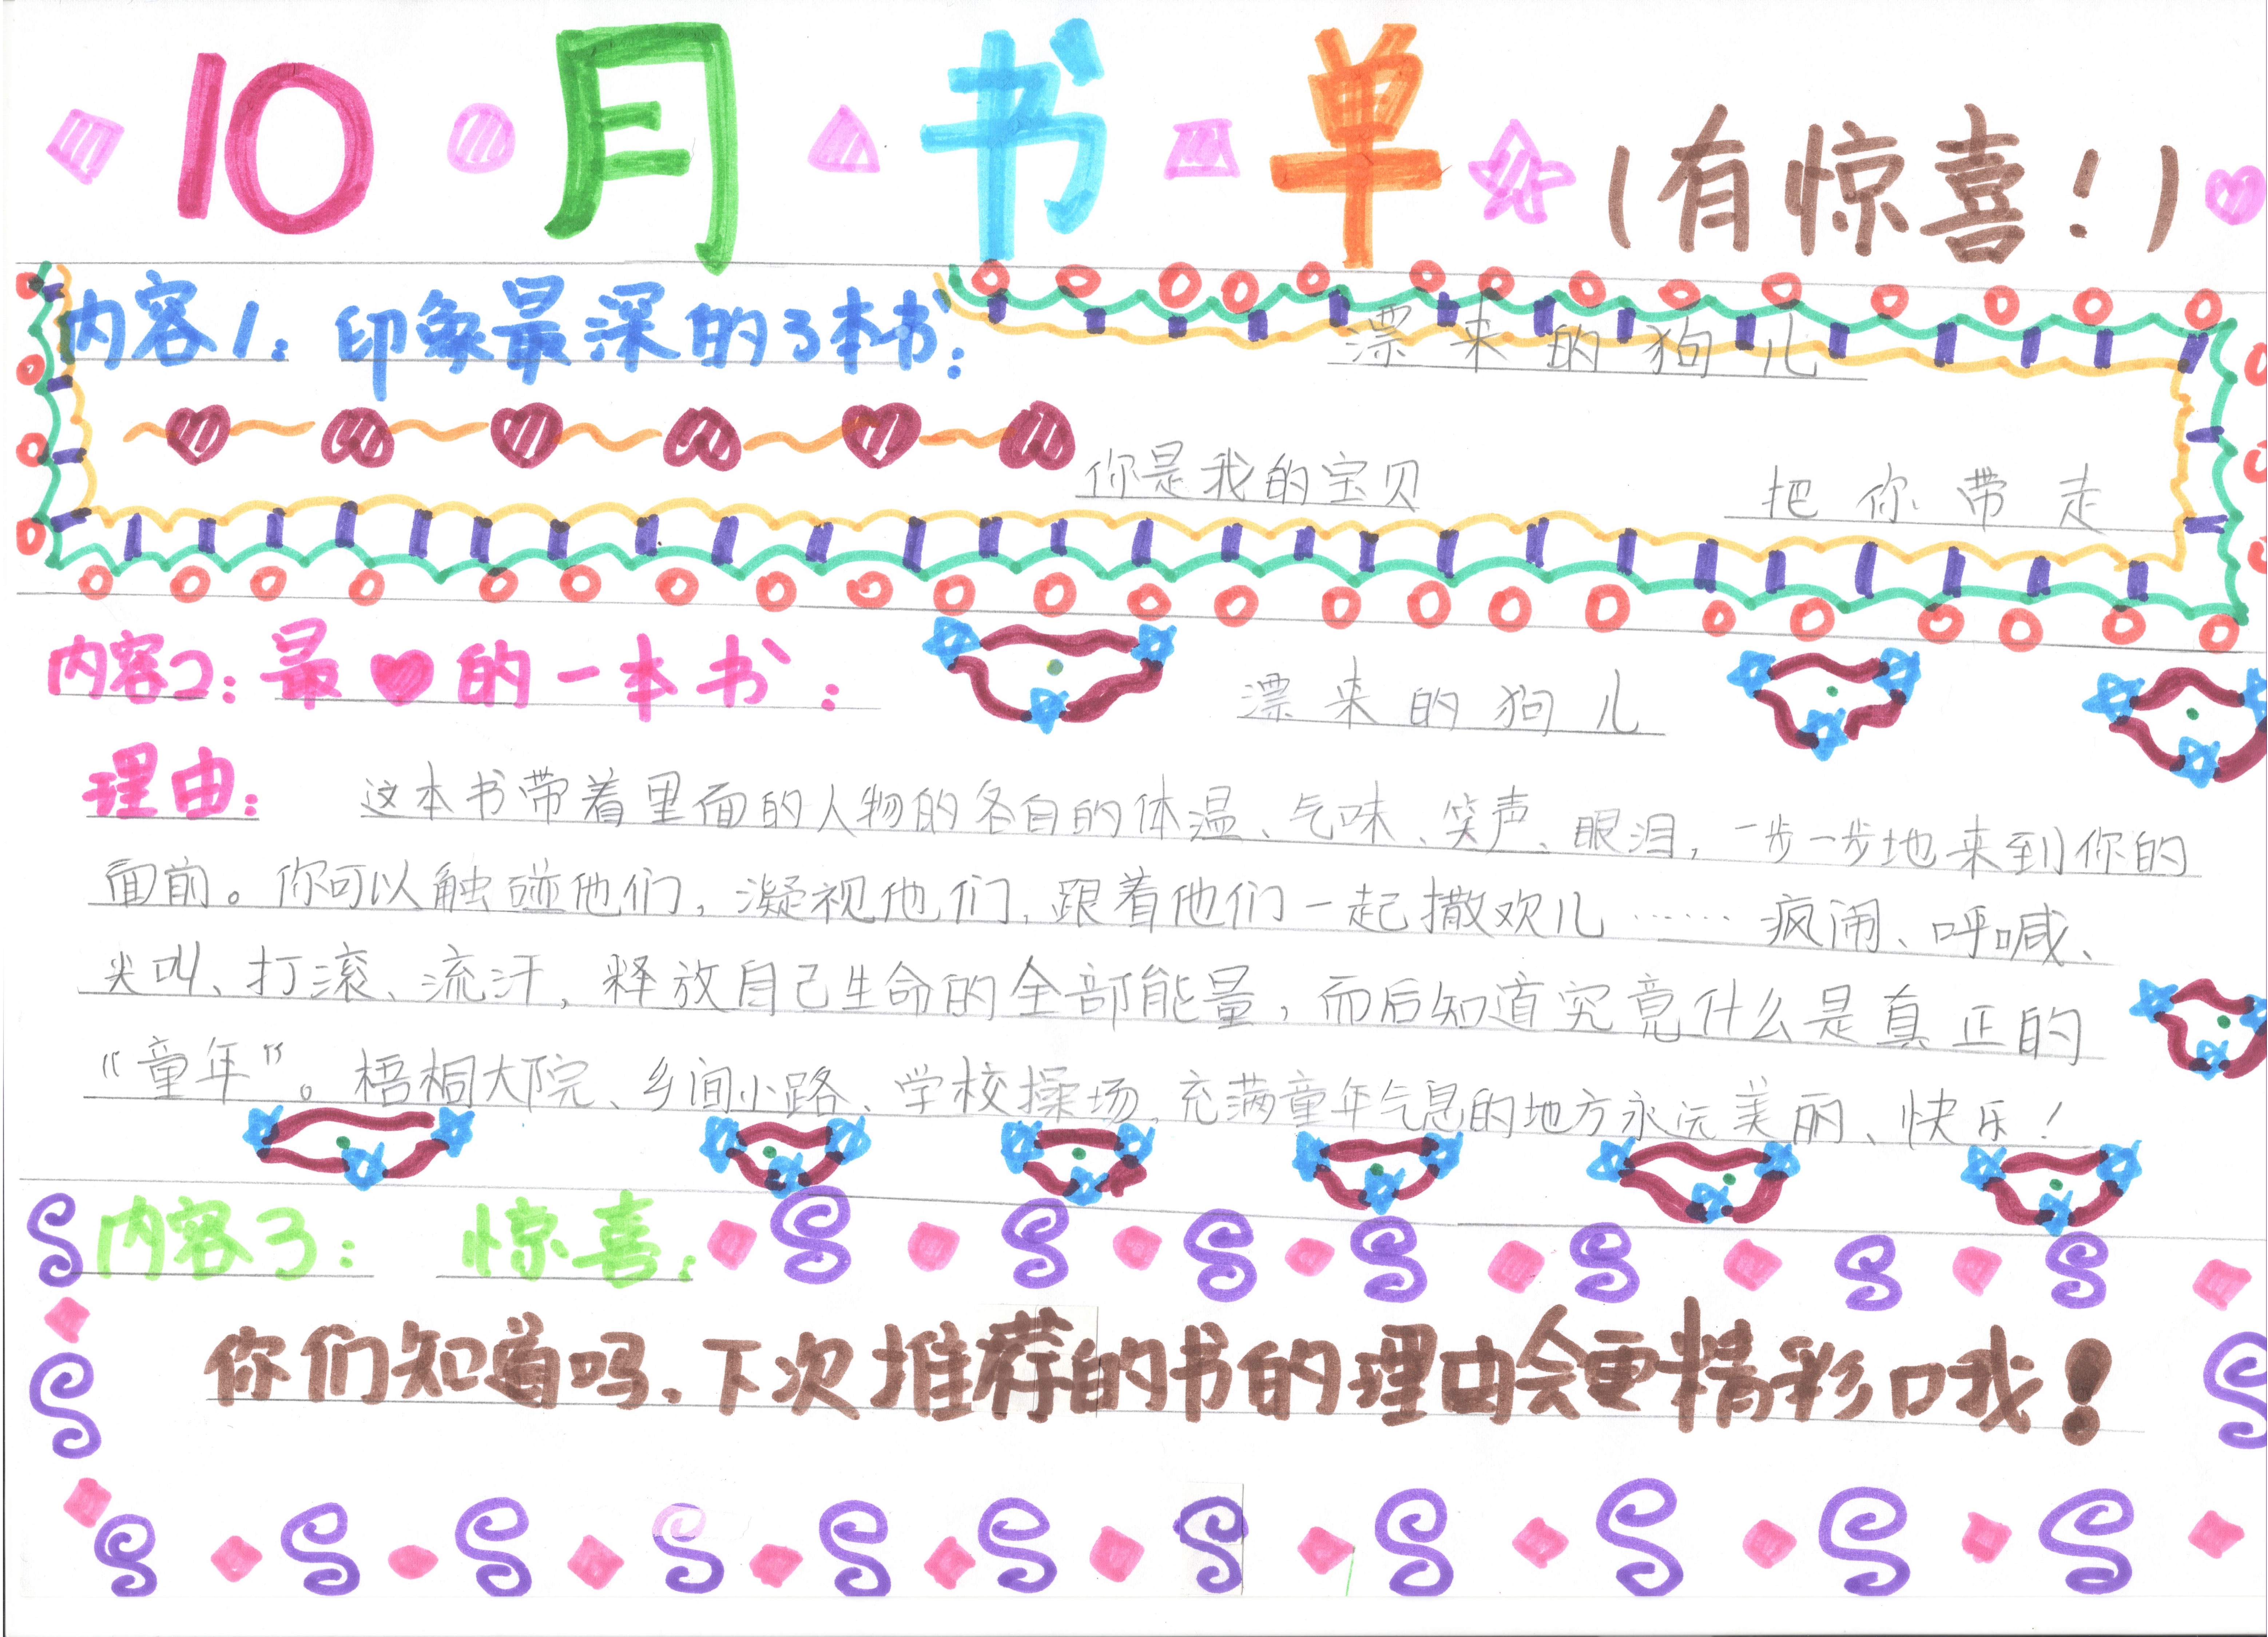 10月书单(有惊喜!)
内容1: 印象最深的3本书: 漂来的狗儿
你是我的宝贝 把你带走
内容2: 最♥的一本书: 漂来的狗儿
理由: 这本书带着里面的人物的各自的体温、气味、笑声、眼泪,一步一步地来到你的
面前。你可以触碰他们,凝视他们,跟着他们一起撒欢儿……疯闹、呼喊、
尖叫、打滚、流汗,释放自己生命的全部能量,而后知道究竟什么是真正的
“童年”。梧桐大院、乡间小路、学校操场,充满童年气息的地方永远美丽、快乐!
内容3: 惊喜:
你们知道吗,下次推荐的书的理由会更精彩哦!